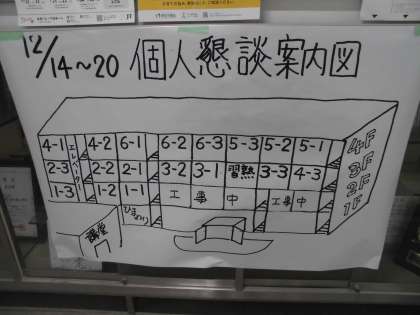 12/14~20 個人懇談案内図
4-1 エレベーター 4-2 6-1 6-2 6-3 5-3 5-2 5-1 4F
2-3 2-2 2-1 3-2 3-1 習熟 3-3 4-3 3F
1-3 1-2 1-1 工事中 工事中 2F
ひまわり 1F
職室